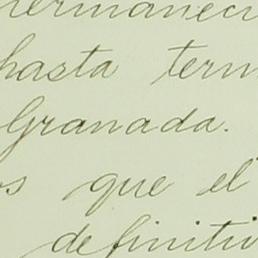 ermaneci
hasta term
Granada.
os que el
definitiv